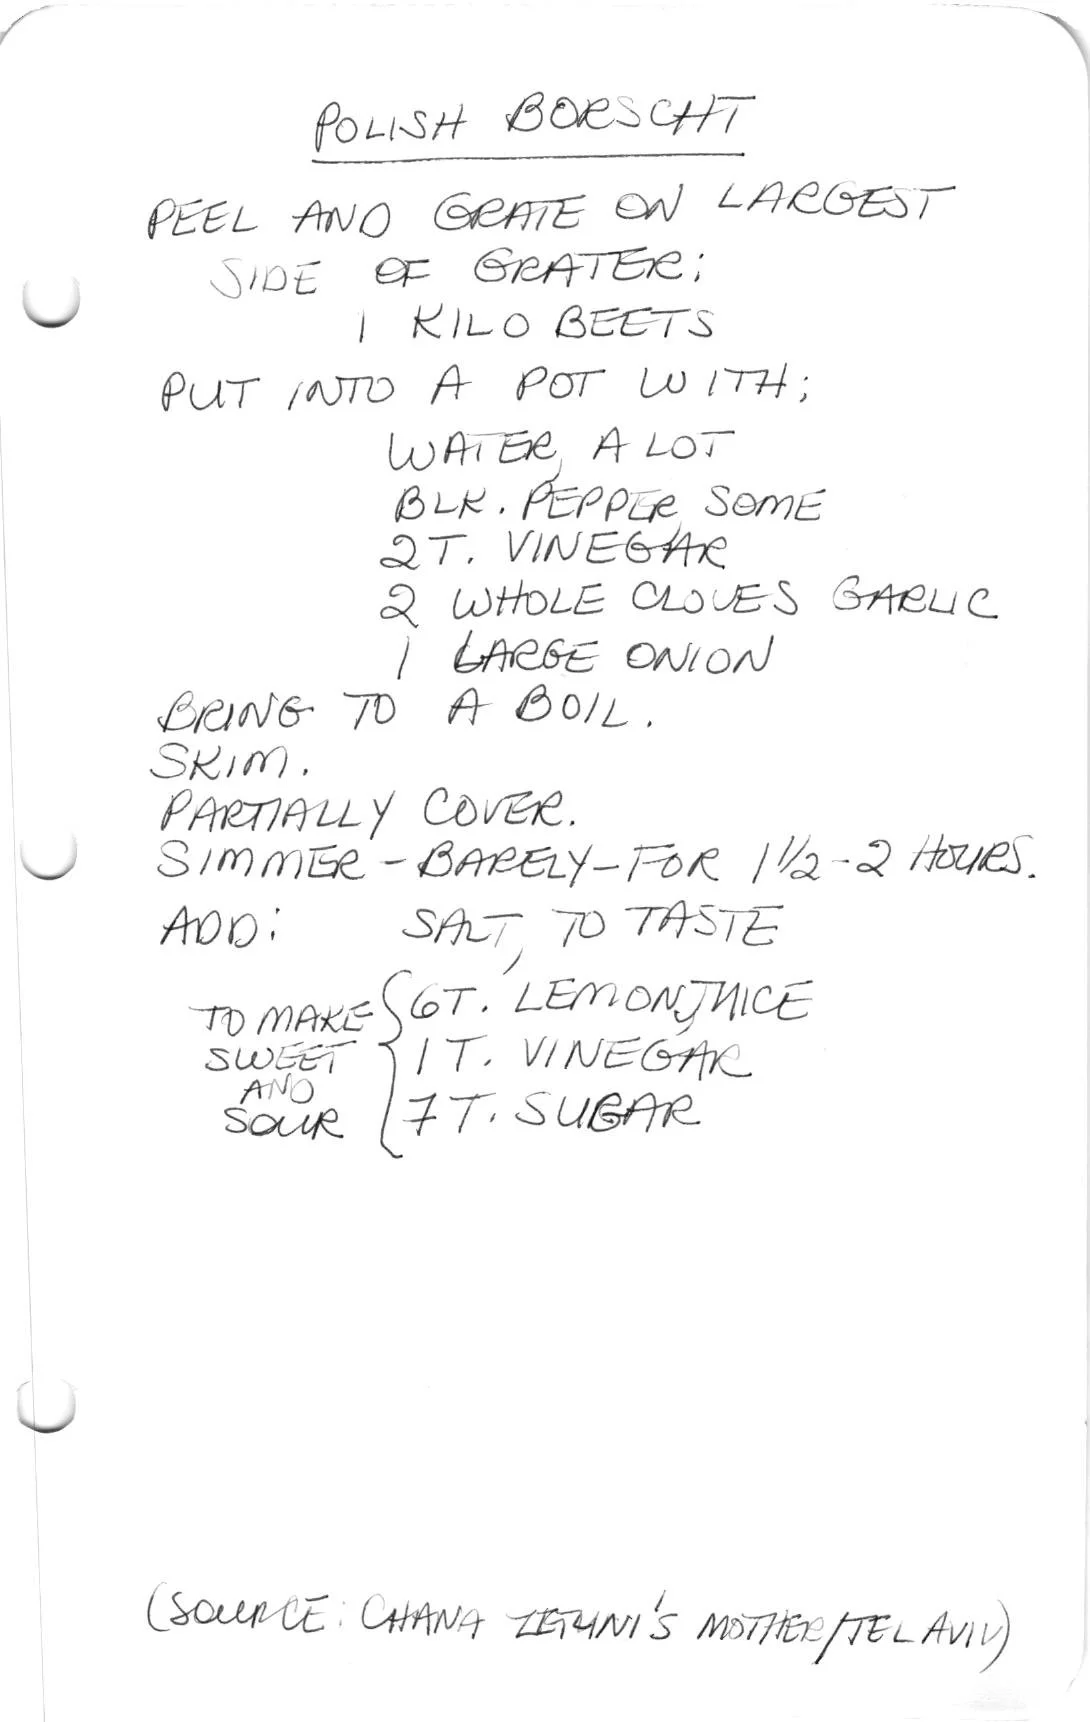 POLISH BORSCHT
PEEL AND GRATE ON LARGEST
SIDE OF GRATER;
1 KILO BEETS
PUT INTO A POT WITH;
WATER, A LOT
BLK. PEPPER, SOME
2 T. VINEGAR
2 WHOLE CLOVES GARLIC
1 LARGE ONION
BRING TO A BOIL.
SKIM.
PARTIALLY COVER.
SIMMER - BARELY - FOR 1 1/2 - 2 HOURS.
ADD: SALT, TO TASTE
TO MAKE SWEET AND SOUR
6 T. LEMON JUICE
1 T. VINEGAR
7 T. SUGAR
(SOURCE: CHANA MOTHER/TEL AVIV)